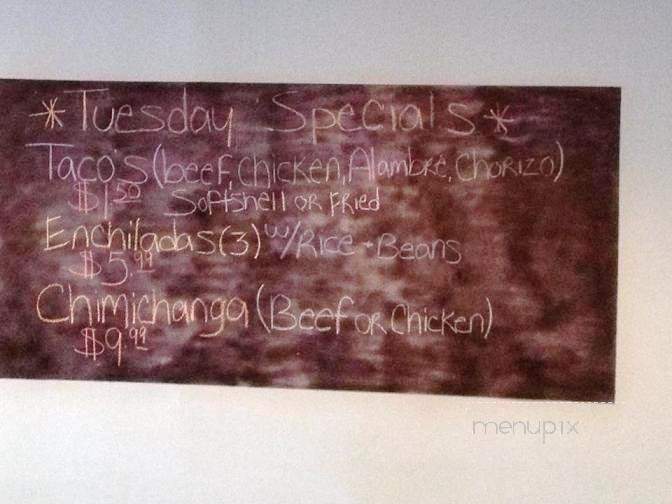 *Tuesday Specials*
Tacos (beef, Chicken, Alambre, Chorizo)
$1.50 Softshell or Fried
Enchiladas (3) w/Rice + Beans
$5.99
Chimichanga (Beef or Chicken)
$9.99
menupix